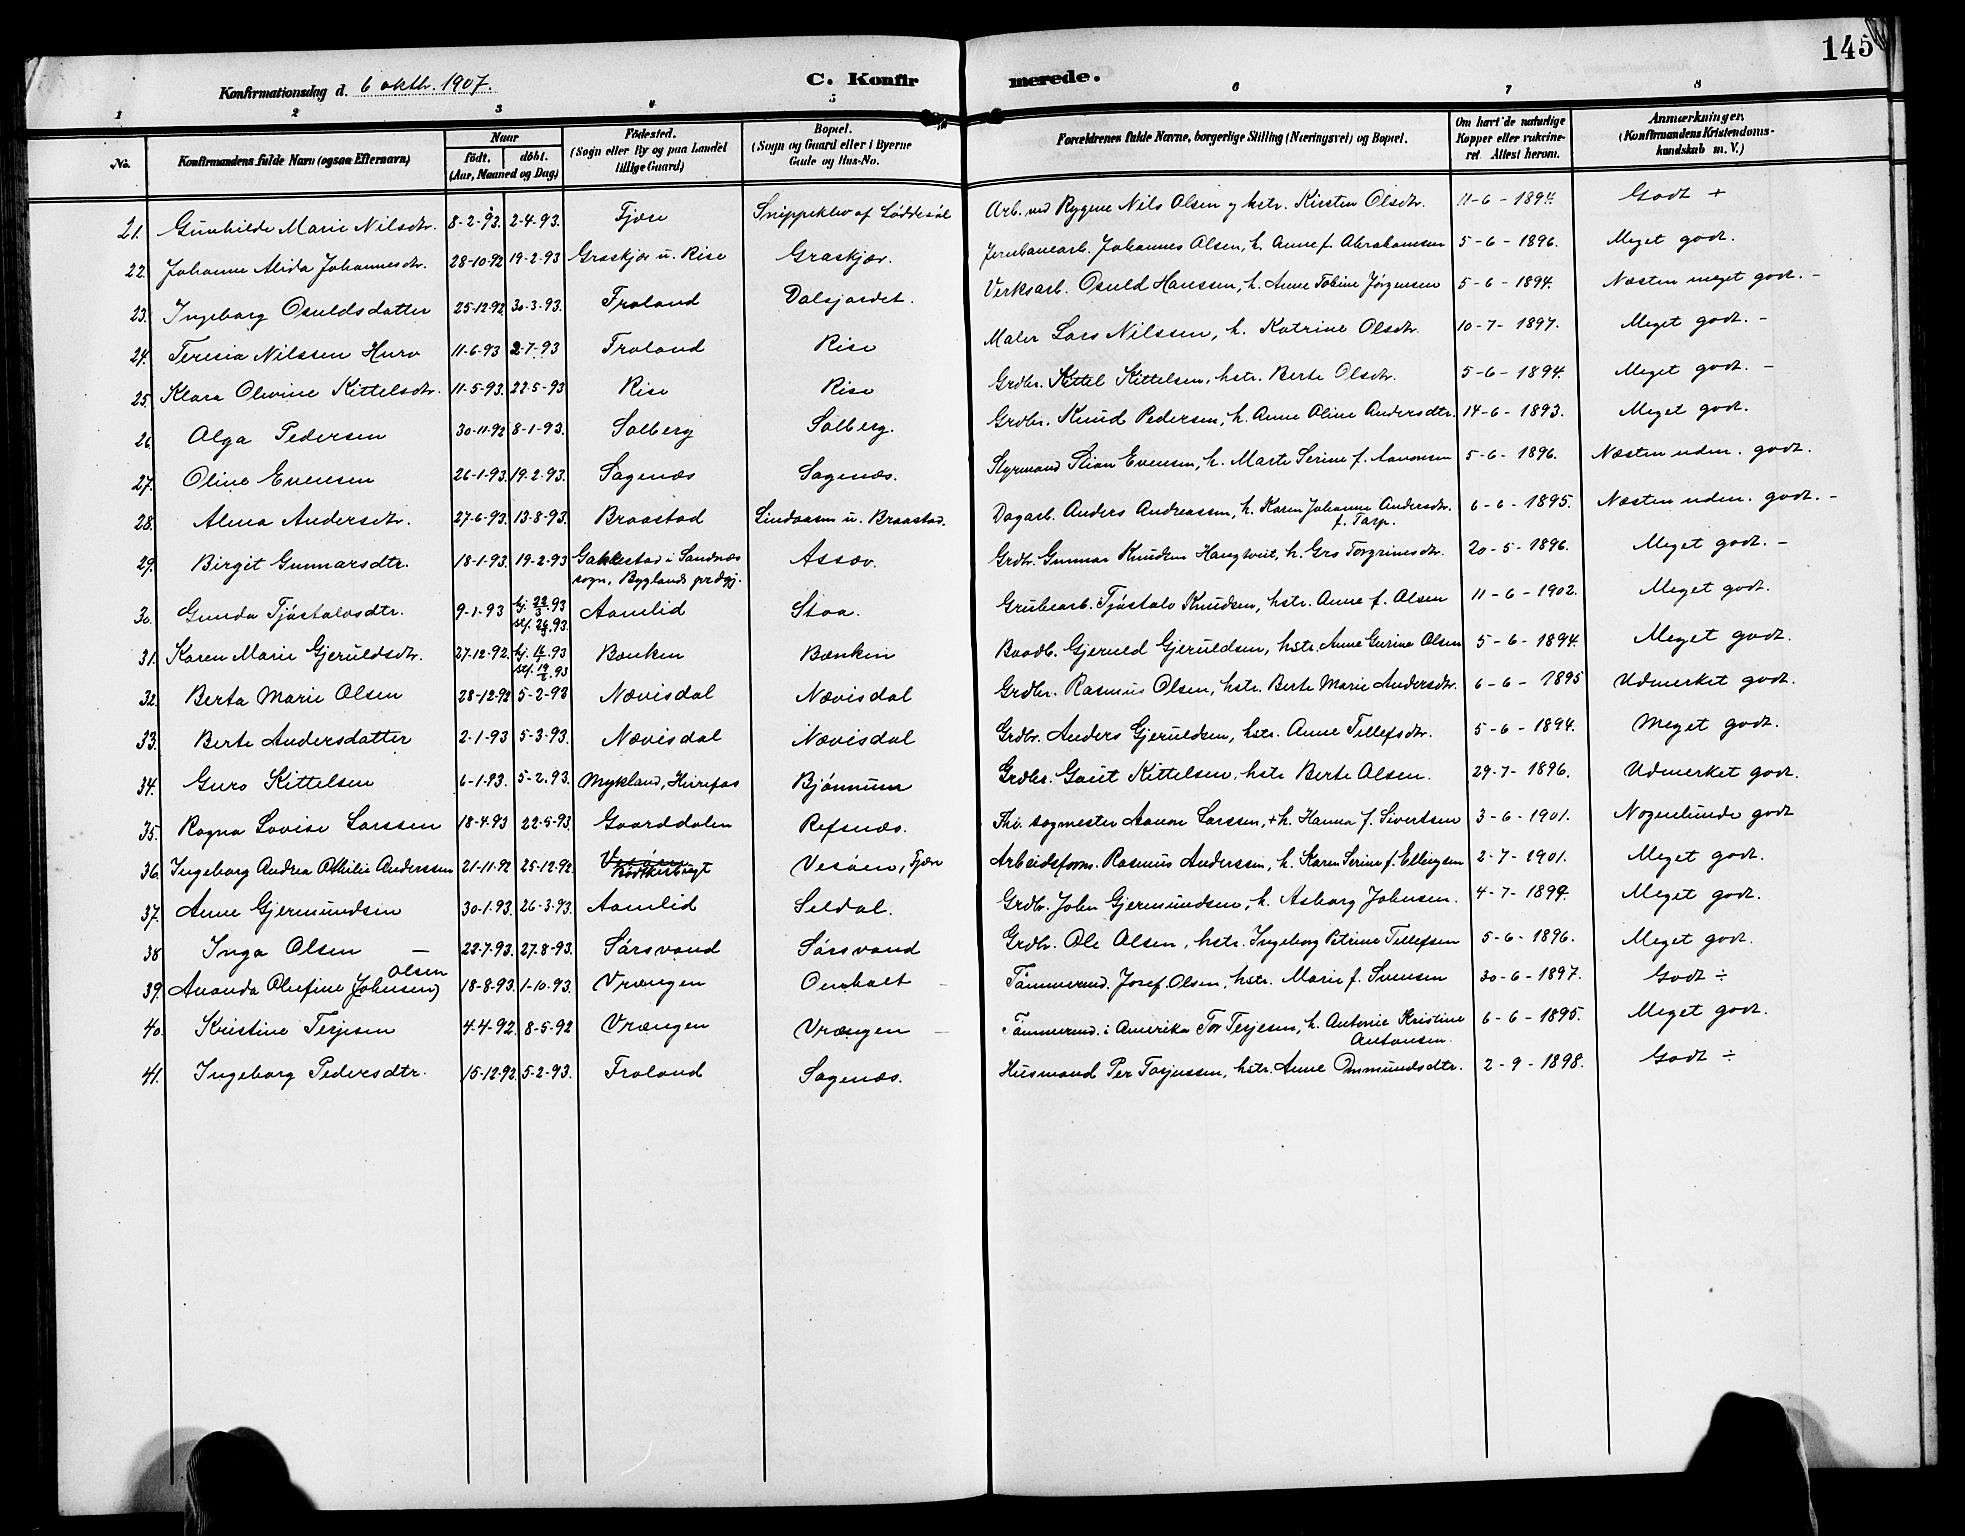 145
Konfirmationsdag d. 6 oktbr. 1907.
C. Konfirmerede.
1 2 3 4 5 6 7 8
No. Konfirmandens fulde Navn (ogsaa Efternavn) Naar født, døbt. (Aar, Maaned og Dag) Fødested. (Sogn eller By og paa Landet tillige Gaard) Bopæl. (Sogn og Gaard eller i Byerne Gade og Hus-No. Forældrenes fulde Navne, borgerlige Stilling (Næringsvei) og Bopæl. Om havt de naturlige Kopper eller vakcineret. Attest herom. Anmærkninger. (Konfirmandens Kristendomskundskab m. V.)
21. Gunhilde Marie Nilsdtr. 8-2-93. 2-4-93. Fjære Snippeklev af Løddesøl Arb. ved Rygene Nils Olsen og hstr. Kirsten Olsdtr. 11-6-1894. Godt +
22. Johanne Alida Johannesdtr. 28-10-92 19-2-93 Graskjær u. Rise Graskjær. Jernbanearb. Johannes Olsen, h. Anne f. Abrahamsen 5-6-1896. Meget godt.
23. Ingeborg Osuldsdatter 25-12-92 30-3-93. Froland Dalsjordet. Verksarb. Osuld Hanssen, h. Anne Tobine Jørgensen 5-6-1894. Næsten meget godt. -
24. Teresia Nilssen Hurv 11-6-93 2-7-93 Froland Rise Maler Lars Nilssen, h. Katrine Olsdtr. 10-7-1897. Meget godt. -
25. Klara Olevine Kittelsdtr. 11-5-93. 22-5-93 Rise Rise Grdbr. Kittel Kittelsen, hstr. Berte Olsdtr. 5-6-1894. Meget godt. -
26 Olga Pedersen 30-11-92 8-1-93. Solberg Solberg. Grdbr. Knud Pedersen, h. Anne Oline Andersdtr. 14-6-1893. Meget godt.
27. Oline Evensen 26-1-93. 19-2-93. Sagenæs Sagenæs. Styrmand Stian Evensen, h. Marte Serine f. Aanonsen 5-6-1896. Næsten udm. godt.
28. Alma Andersdtr. 27-6-93. 13-8-93. Braastad Lindaasen u. Braastad. Dagarb. Anders Andreassen, h. Karen Johanne Andersdtr. f. Tarp. 6-6-1895. Næsten udm. godt. -
29. Birgit Gunnarsdtr. 18-1-93. 19-2-93 Gakkestad i Sandnæs sogn, Byglands prdgj. Assæv. Grdbr. Gunnar Knudsen Haugtveit, h. Gro Torgrimsdtr. 20-5-1896. Meget godt. -
30. Gunda Tjøstalvsdtr. 9-1-93 hj. 22/3 93 stf. 26/3 93. Aamlid Stoa. Grubearb. Tjøstalv Knudsen, hstr. Anne f. Olsen 11-6-1902. Meget godt.
31. Karen Marie Gjeruldsdtr. 27-12-92. Bænken Bænken Gjeruld Gjeruldsen, hstr. Anne Gurine Olsen 5-6-1894. Meget godt.
32. Berta Marie Olsen 28-12-92 5-2-93 Nævisdal Nævisdal Grdbr. Rasmus Olsen, hstr. Berte Marie Andersdtr. 6-6-1895 Udmerket godt.
33. Berte Andersdatter 2-1-93 5-3-93. Nævisdal Nævisdal Grdbr. Anders Gjeruldsen, hstr. Anne Tellefsdtr. 5-6-1894. Meget godt.
34. Guro Kittelsen 6-1-93. 5-2-93. Mykland, Heirefos Bjønnum Grdbr. Gaut Kittelsen, hstr. Berte Olsen. 29-7-1896. Udmerket godt.
35. Ragna Lovise Larssen 18-4-93 22-5-93. Gaarddalen Refsnæs. Fhv. sagmester Aanon Larssen, + h. Hanna f. Sivertsen 3-6-1901. Nogenlunde godt
36. Ingeborg Andrea Othilie Anderssen 21-11-92 25-12-92. Vesøen, Fjære Arbeidsform. Rasmus Anderssen, h. Karen Serine f. Ellingsen 2-7-1901. Meget godt.
37. Anne Gjermundsen 30-1-93. 26-3-93. Aamlid Seldal. Grdbr. John Gjermundsen, h. Asborg Johnsen. 4-7-1899. Meget godt.
38 Inga Olsen — 22-7-93. 27-8-93. Sørsvand Sørsvand Grdbr. Ole Olsen, hstr. Ingeborg Petrine Tellefsen 5-6-1896. Meget godt.
39. Ananda Olufine Johnsen) Olsen 18-8-93. 1-10-93. Vrængen Omholt Tømmermd. Josef Olsen, hstr. Marie f. Svensen 30-6-1897. Godt ÷
40. Kristine Terjesen 4-4-92. 8-5-92 Vrængen Vrængen Tømmermd. i Amerika Tor Terjesen, h. Antonie Kristine Antonsen. 6-6-1895. Meget godt.
41. Ingeborg Pedersdtr. 15-12-92. 5-2-93. Froland Sagenæs. Husmand Per Torjussen, hstr. Anne Ommundsdtr. 2-9-1898. Godt ÷